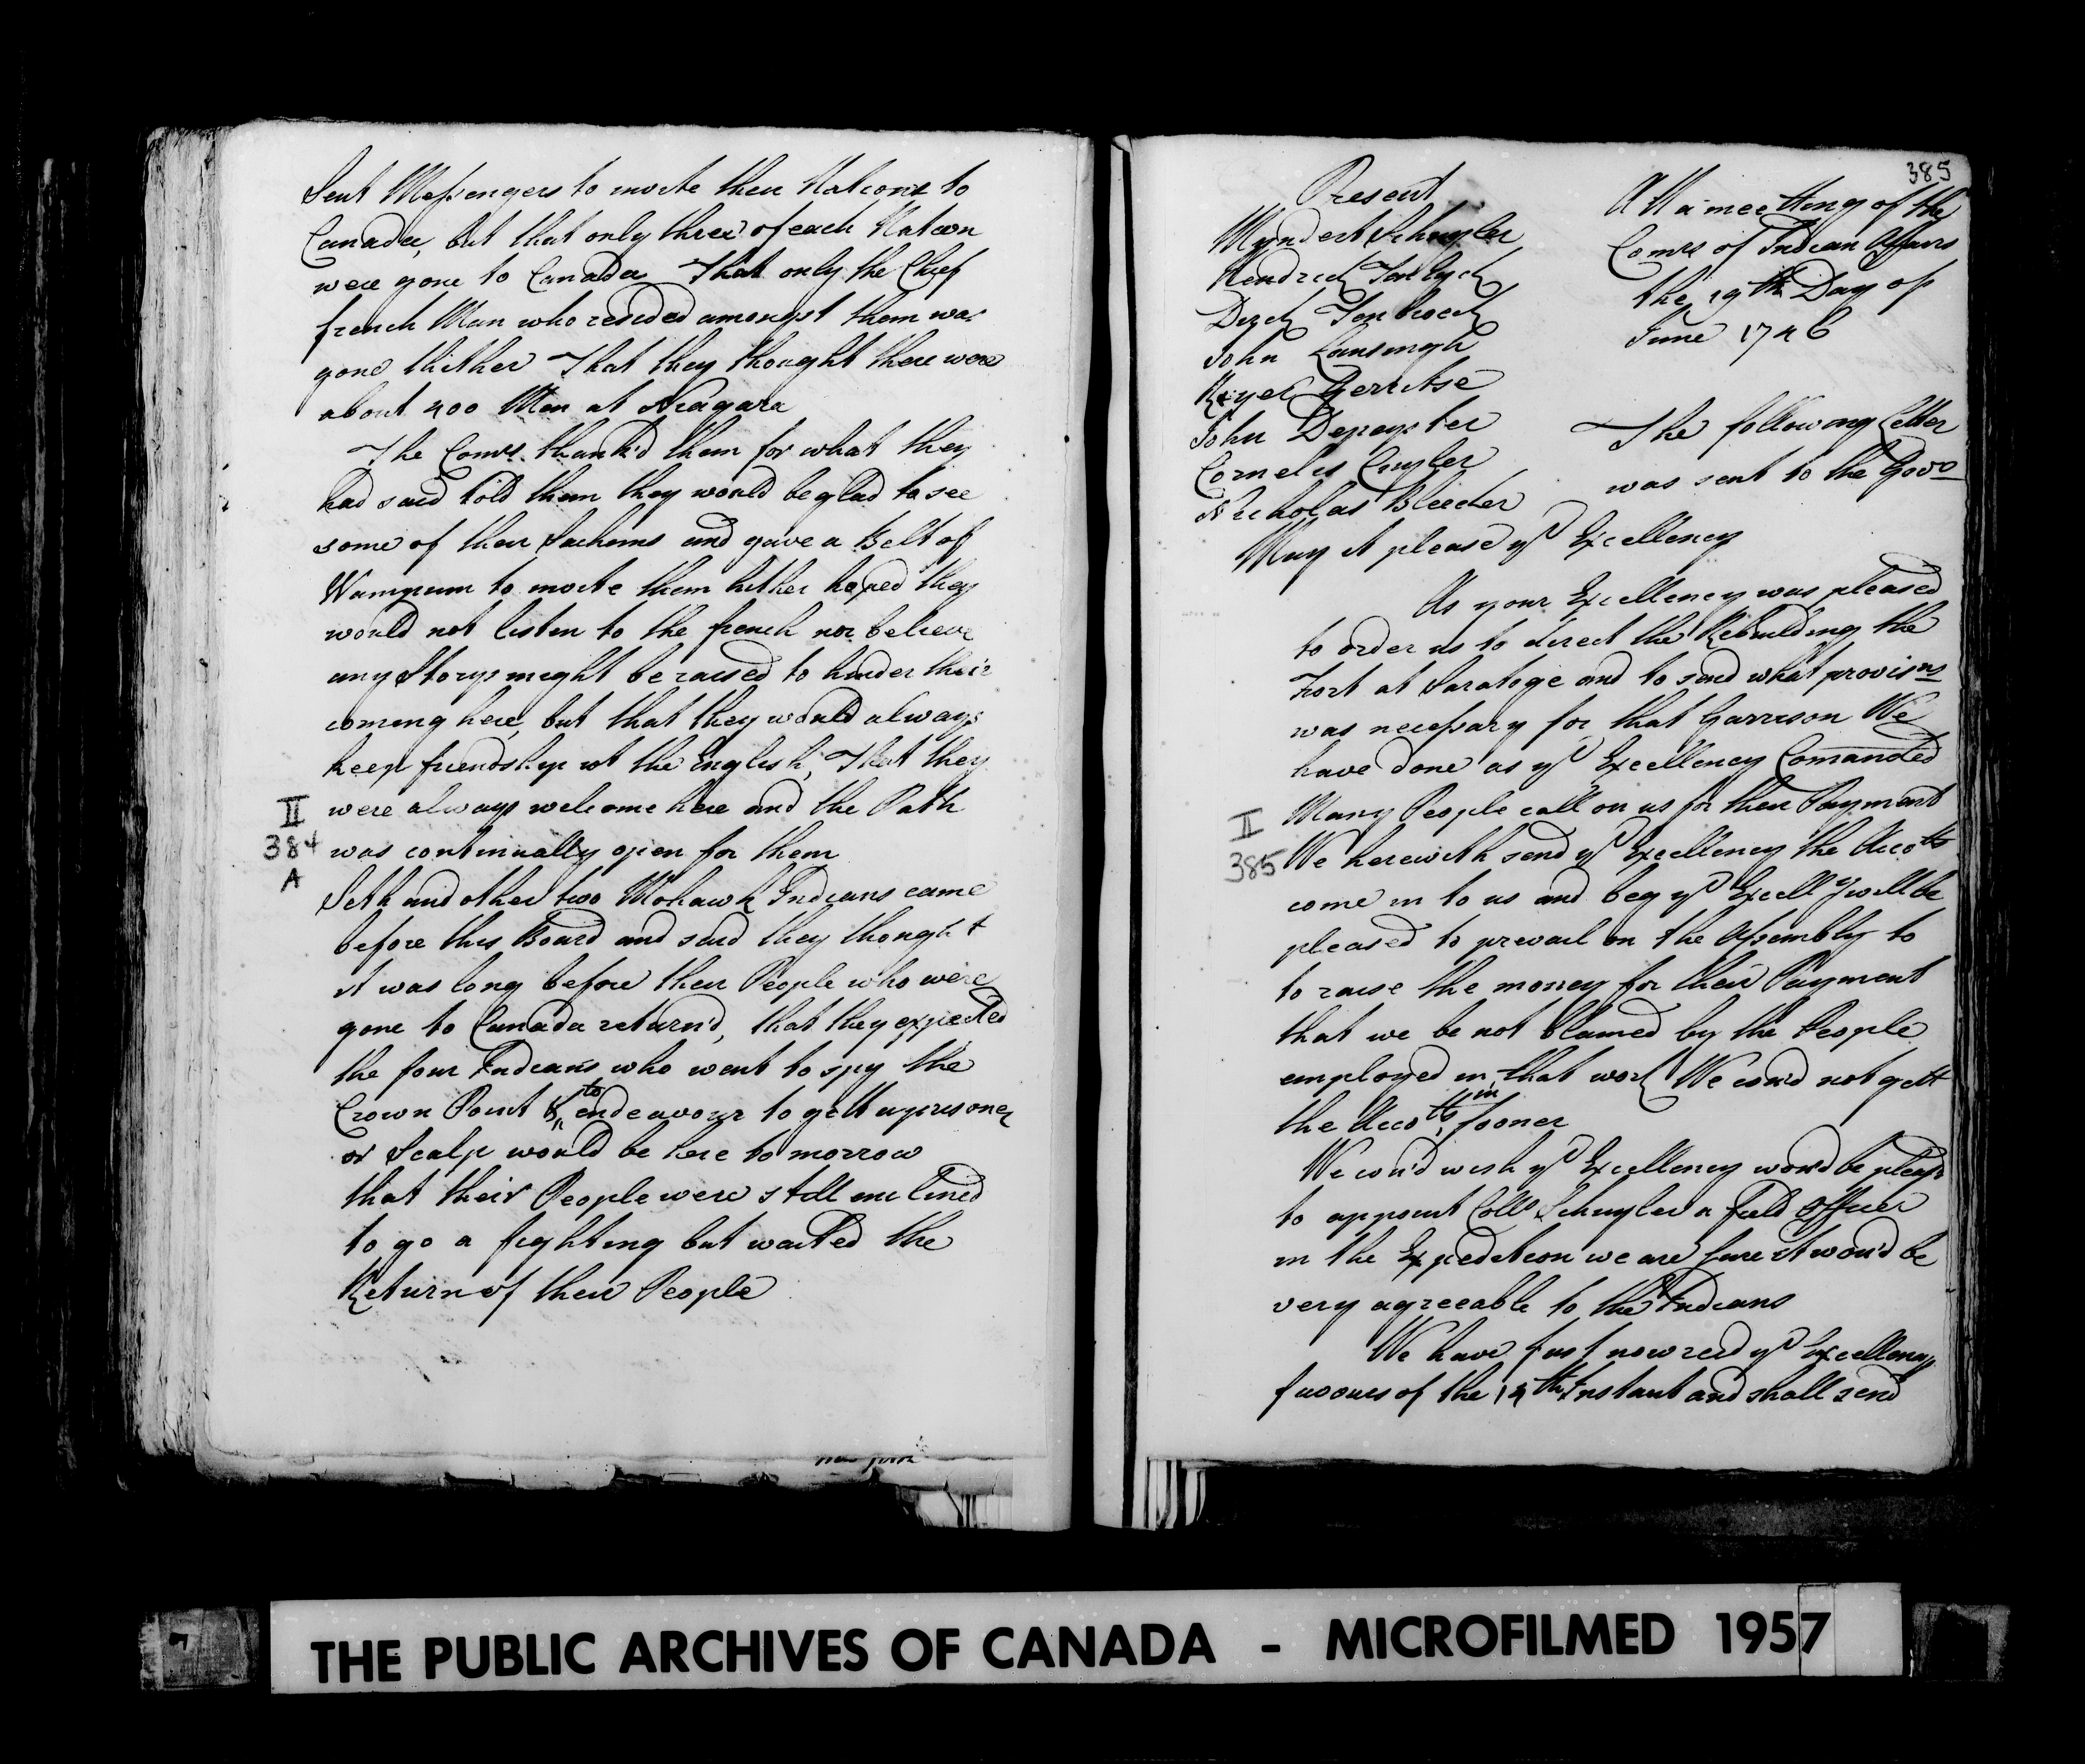 Sent Messengers to invite their Nations to
Canada, but that only three of each Nation
were gone to Canada That only the Chief
french Man who resided amongst them was
gone thither That they thought there were
about 400 Men at Niagara
The Comrs. thank'd them for what they
had said told them they would be glad to see
some of their Sachims and gave a Belt of
Wampum to invite them hither hoped they
would not listen to the french nor believe
any Storys might be raised to hinder their
coming here, but that they would always
keep friendship wt the English, That they
were always welcome here and the Path
was continually open for them
II
384
A
Seth and other two Mohawk Indians came
before this Board and said they thought
it was long before their People who were
gone to Canada return'd, that they expected
the four Indians who went to spy the
Crown Point & to endeavour to gett a prisoner
or Scalp would be here to morrow
that their People were still inclined
to go a fighting but waited the
Return of their People
385
Present
Myndert Schuyler
Hendrick Ten Eyck
Dirck Ten broeck
John Lansingh
Reyer Gerritse
John Depeyster
Cornelis Cuyler
Nicholas Bleecker
Att a meetting of the
Comrs of Indian Affairs
the 19th Day of
June 1746
The following Letter
was sent to the Govo
May it please yr Excellency
As your Excellency was pleased
to order us to direct the Rebuilding the
Fort at Saratoge and to send what provisns
was necessary for that Garrison We
have done as yr Excellency Comanded
Many People call on us for their Payment
We herewith send yr Excellency the Accots
come in to us and beg yr Excelly will be
pleased to prevail on the Assembly to
to raise the money for their Payment
that we be not blamed by the People
employed in that work We cou'd not gett
the Accots in sooner
II
385
We cou'd wish yr Excellency wou'd be pleasd
to appoint Coll Schuyler a field Officer
in the Expedition we are sure it wou'd be
very agreeable to the Indians
We have just now recd yr Excellency
favours of the instant and shall send
THE PUBLIC ARCHIVES OF CANADA - MICROFILMED 1957